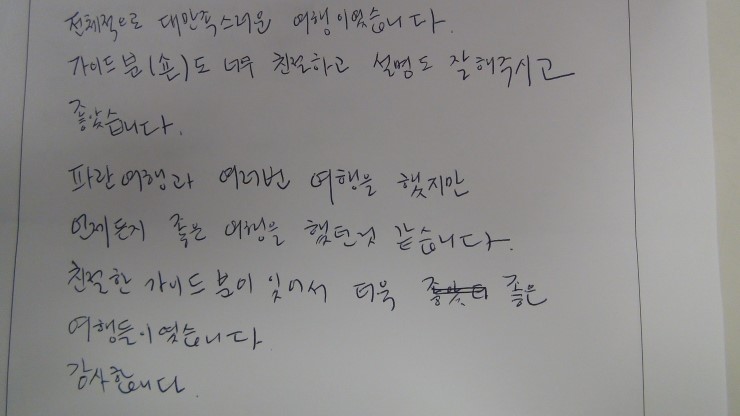 전체적으로 대만족스러운 여행이었습니다.
가이드분(숀)도 너무 친절하고 설명도 잘해주시고
좋았습니다.
파란여행과 여러번 여행을 했지만
언제든지 좋은 여행을 했던것 같습니다.
친절한 가이드분이 있어서 더욱 좋았다 좋은
여행들이였습니다
감사합니다.